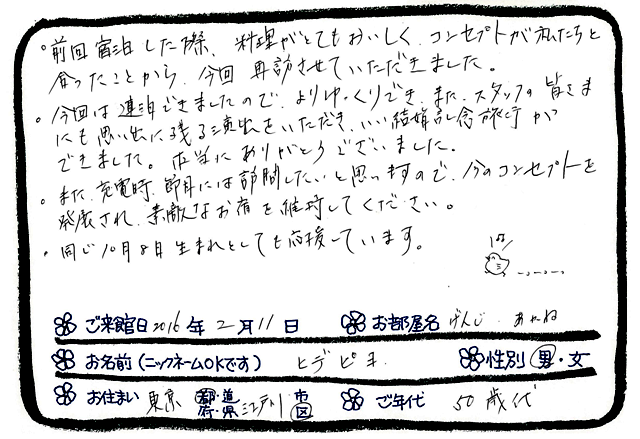 ・前回宿泊した際、料理がとてもおいしく、コンセプトが私たちと
合ったことから、今回再訪させていただきました。
・今回は連泊できましたので、よりゆっくりでき、また、スタッフの皆さま
にも思い出に残る演出をいただき、いい結婚記念旅行が
できました。本当にありがとうございました。
・また、充電時、節目には訪問したいと思いますので、今のコンセプトを
発展され、素敵なお宿を維持してください。
・同じ10月8日生まれとしても応援しています。
ご来館日 2016年 2月 11日 お部屋名 げんじ あかね
お名前(ニックネームOKです) ヒデ ピヨ 性別 男・女
お住まい 東京 都・道 府・県 江戸川 市 区 ご年代 50歳代